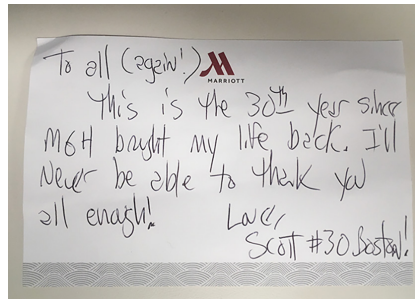 To all (again!)
MARRIOTT
This is the 30th year since
MGH brought my life back. I'll
Never be able to thank you
all enough!
Love,
Scott #30 Boston!